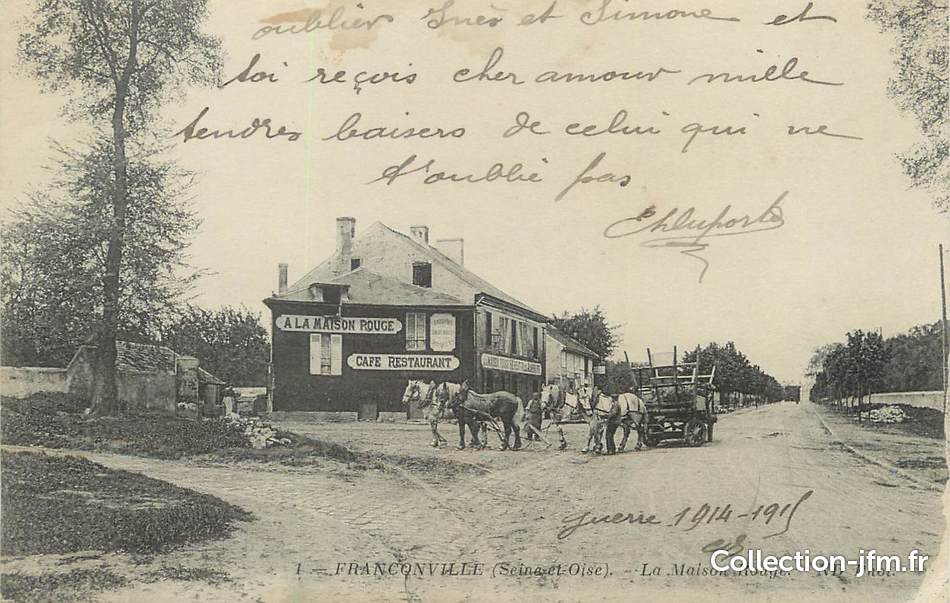 oublier Inès et Simone et
toi reçois cher amour mille
tendres baisers de celui qui ne
t'oublie pas
A LA MAISON ROUGE
CAFÉ RESTAURANT
guerre 1914-1915
1 — FRANCONVILLE (Seine-et-Oise). — La Maison Rouge. ND Phot.
Collection-jfm.fr